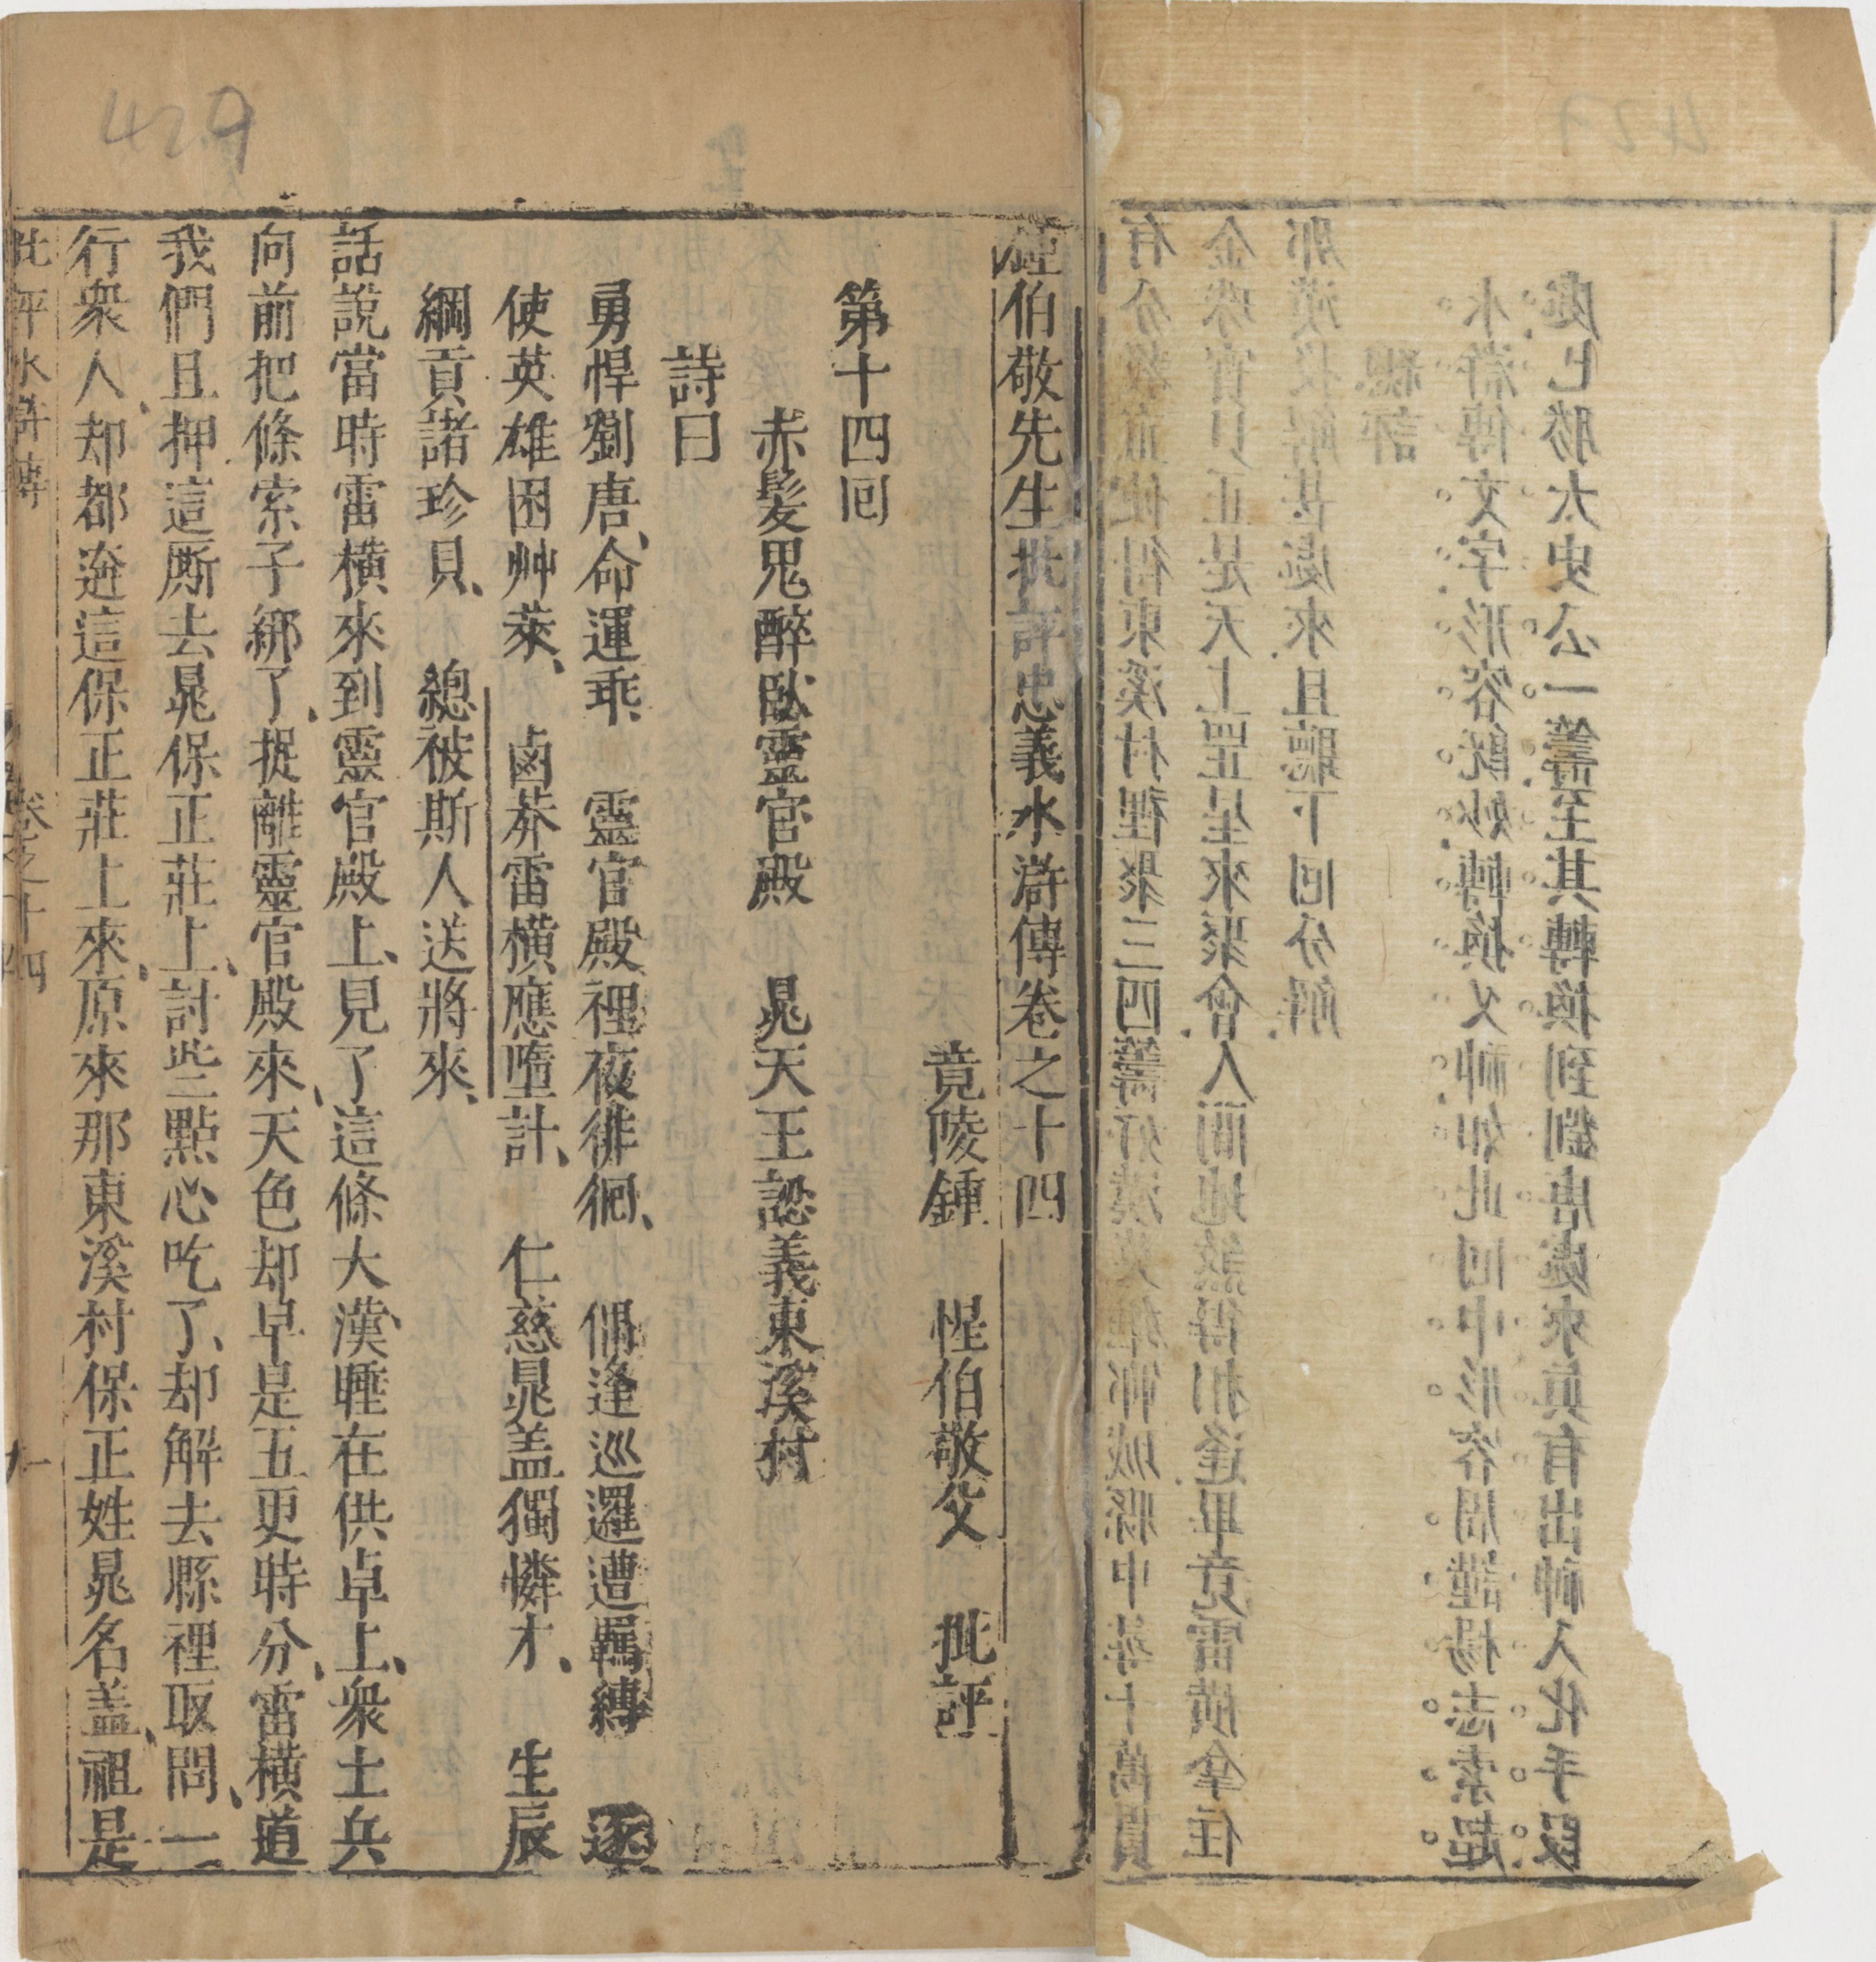 有分教直使得東溪村裡聚三四籌好漢英雄鄆城縣中尋十萬貫
金珠寶貝正是天上罡星來聚會人間地煞得相逢畢竟雷橫拿住
那漢投解甚處來且聽下回分解
總評
水滸傳文字形容既妙轉換又神如此回中形容周謹楊志索超
處已勝太史公一籌至其轉換到劉唐處來真有出神入化手段
鍾伯敬先生批評忠義水滸傳卷之十四
竟陵鍾 惺伯敬父 批評
第十四囘
赤髪鬼醉臥靈官殿 晁天王認義東溪村
詩曰
勇悍劉唐、命運乖 靈官殿裡夜徘徊、 偶逢巡邏遭羈縛 逐
使英雄困艸萊、 鹵莽雷橫應墮計、 仁慈晁盖獨憐才、 生辰
綱貢諸珍貝、 總被斯人送將來、
話說當時雷橫來到靈官殿上、見了這條大漢、睡在供卓上、衆土兵
向前把條索子綁了、捉離靈官殿來、天色却早是五更時分、雷橫道
我們且押這厮去晁保正莊上、討些點心吃了、却解去縣裡取問、一
行衆人、却都迯這保正莊上來、原來那東溪村保正姓晁名盖、祖是
批評水滸傳 卷之十四 一
429